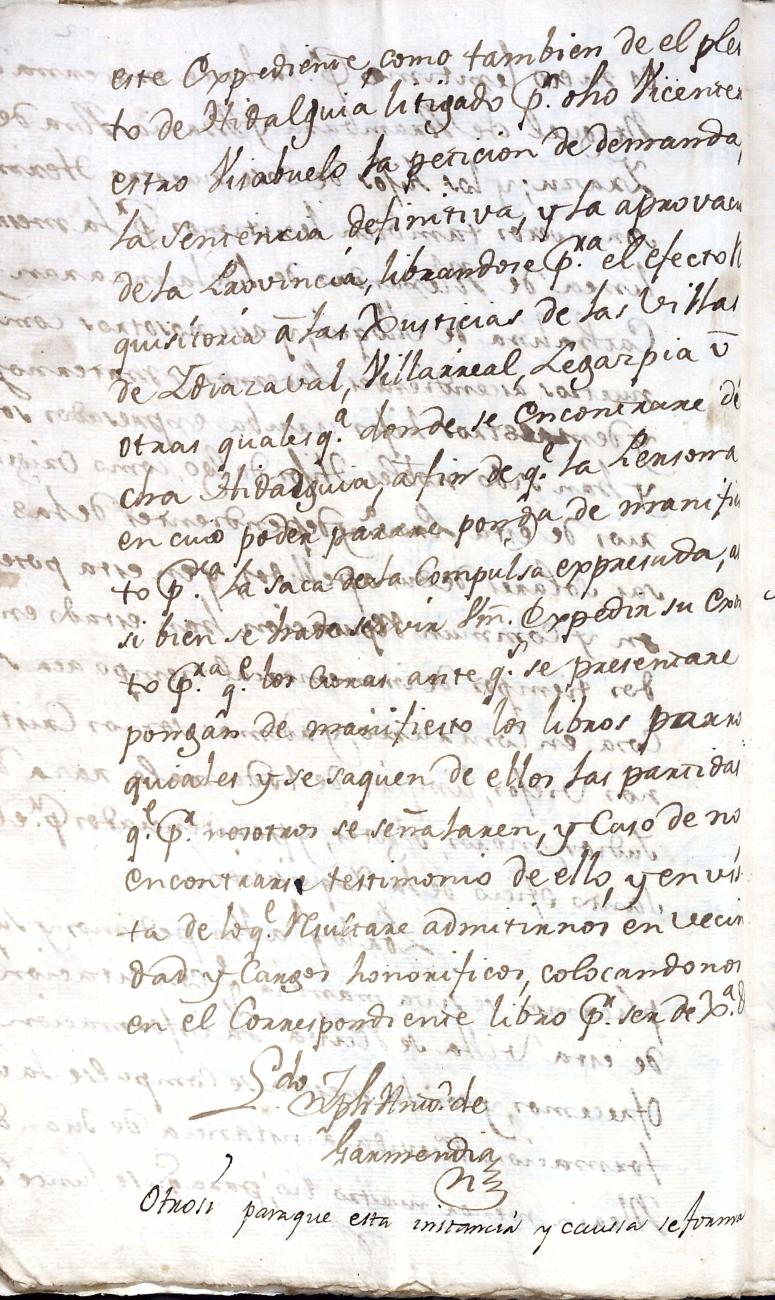 este Expediente, como tambien de el plei
to de Hidalguia litigado p.r dho Vicente n
estro Visabuelo la peticion de demanda,
la sentencia definitiva, y la aprovacn
de la Provincia, librandose p.ra el efecto R
quisitoria â las Justicias de las Villas
de Ydiazaval, Villarreal, Legazpia v
otras qualesq.a donde se encontrare dĕ
cha Hidalguia, â fin de q.e la Persona
en cuio poder parare ponga de manifies
to p.ra la saca de la Compulsa expresada, a
si bien se hade servir Vm. Expedir su Exor
to p.ra q.e los Curas ante q.n se presentare
pongan de manifiesto los libros parro
quiales y se saquen de ellos las partidas
q.e p.r nosotros se señalaren, y Caso de no
encontrarse testimonio de ello, y en vis
ta de loq.e Resultare admitirnos en vecin
dad y Cargos honorificos, colocandonos
en el Correspondiente libro p.r ser de Jx.a &
Lz.do Jph Anto. de
Garmendia
Otrosi paraque esta instancia y caussa se forma